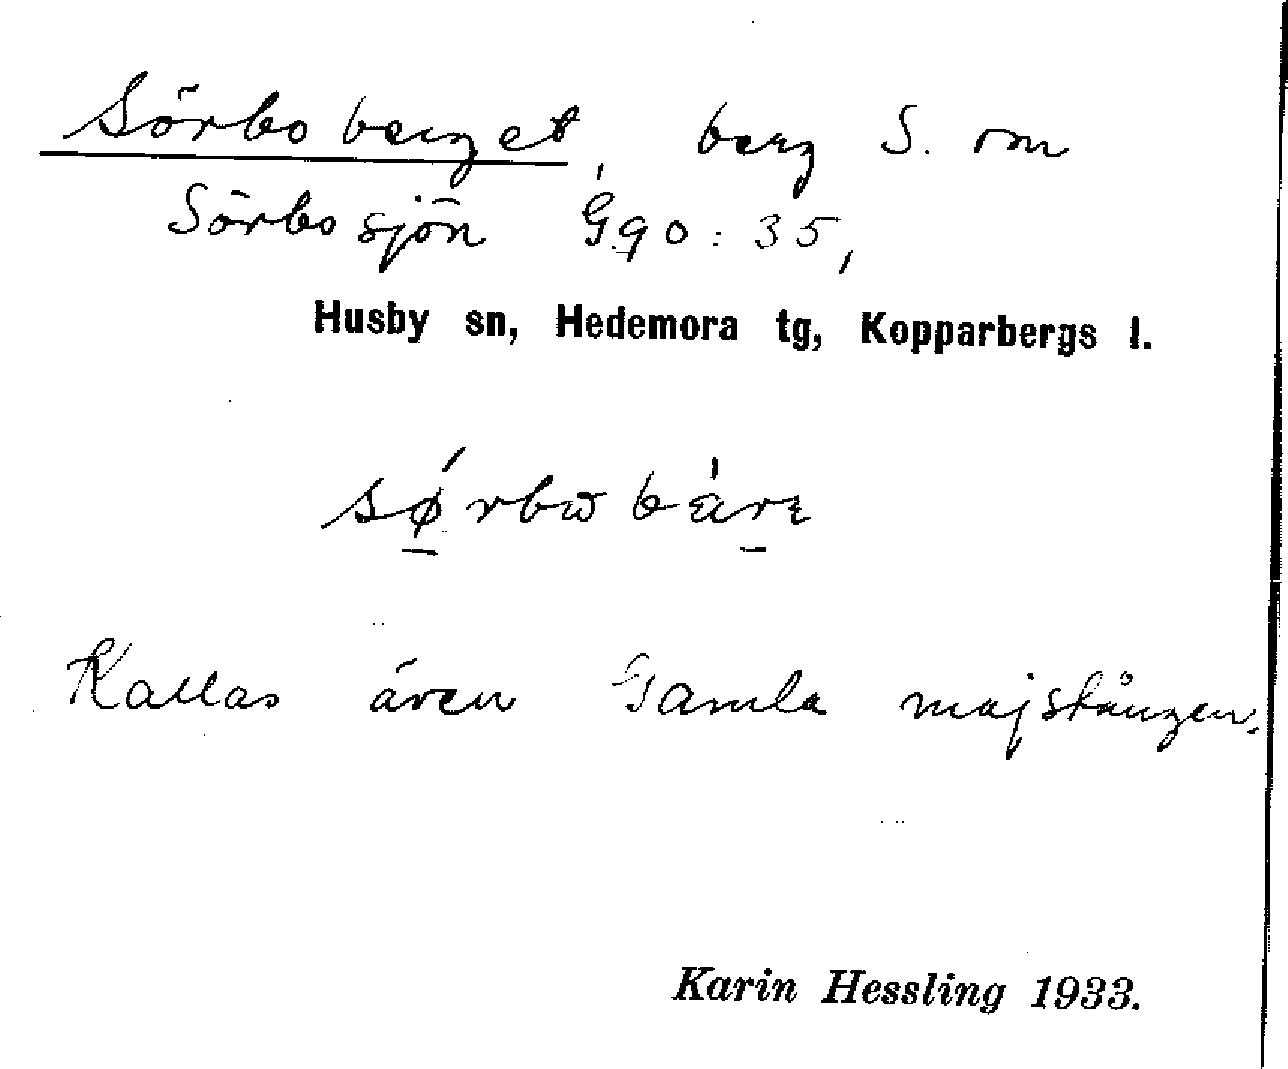 Sörbo berget, berg S. om
Sörbo sjön Gg0:35,
Husby sn, Hedemora tg, Kopparbergs l.
Kallas även Gamla majstången.
Karin Hessling 1933.